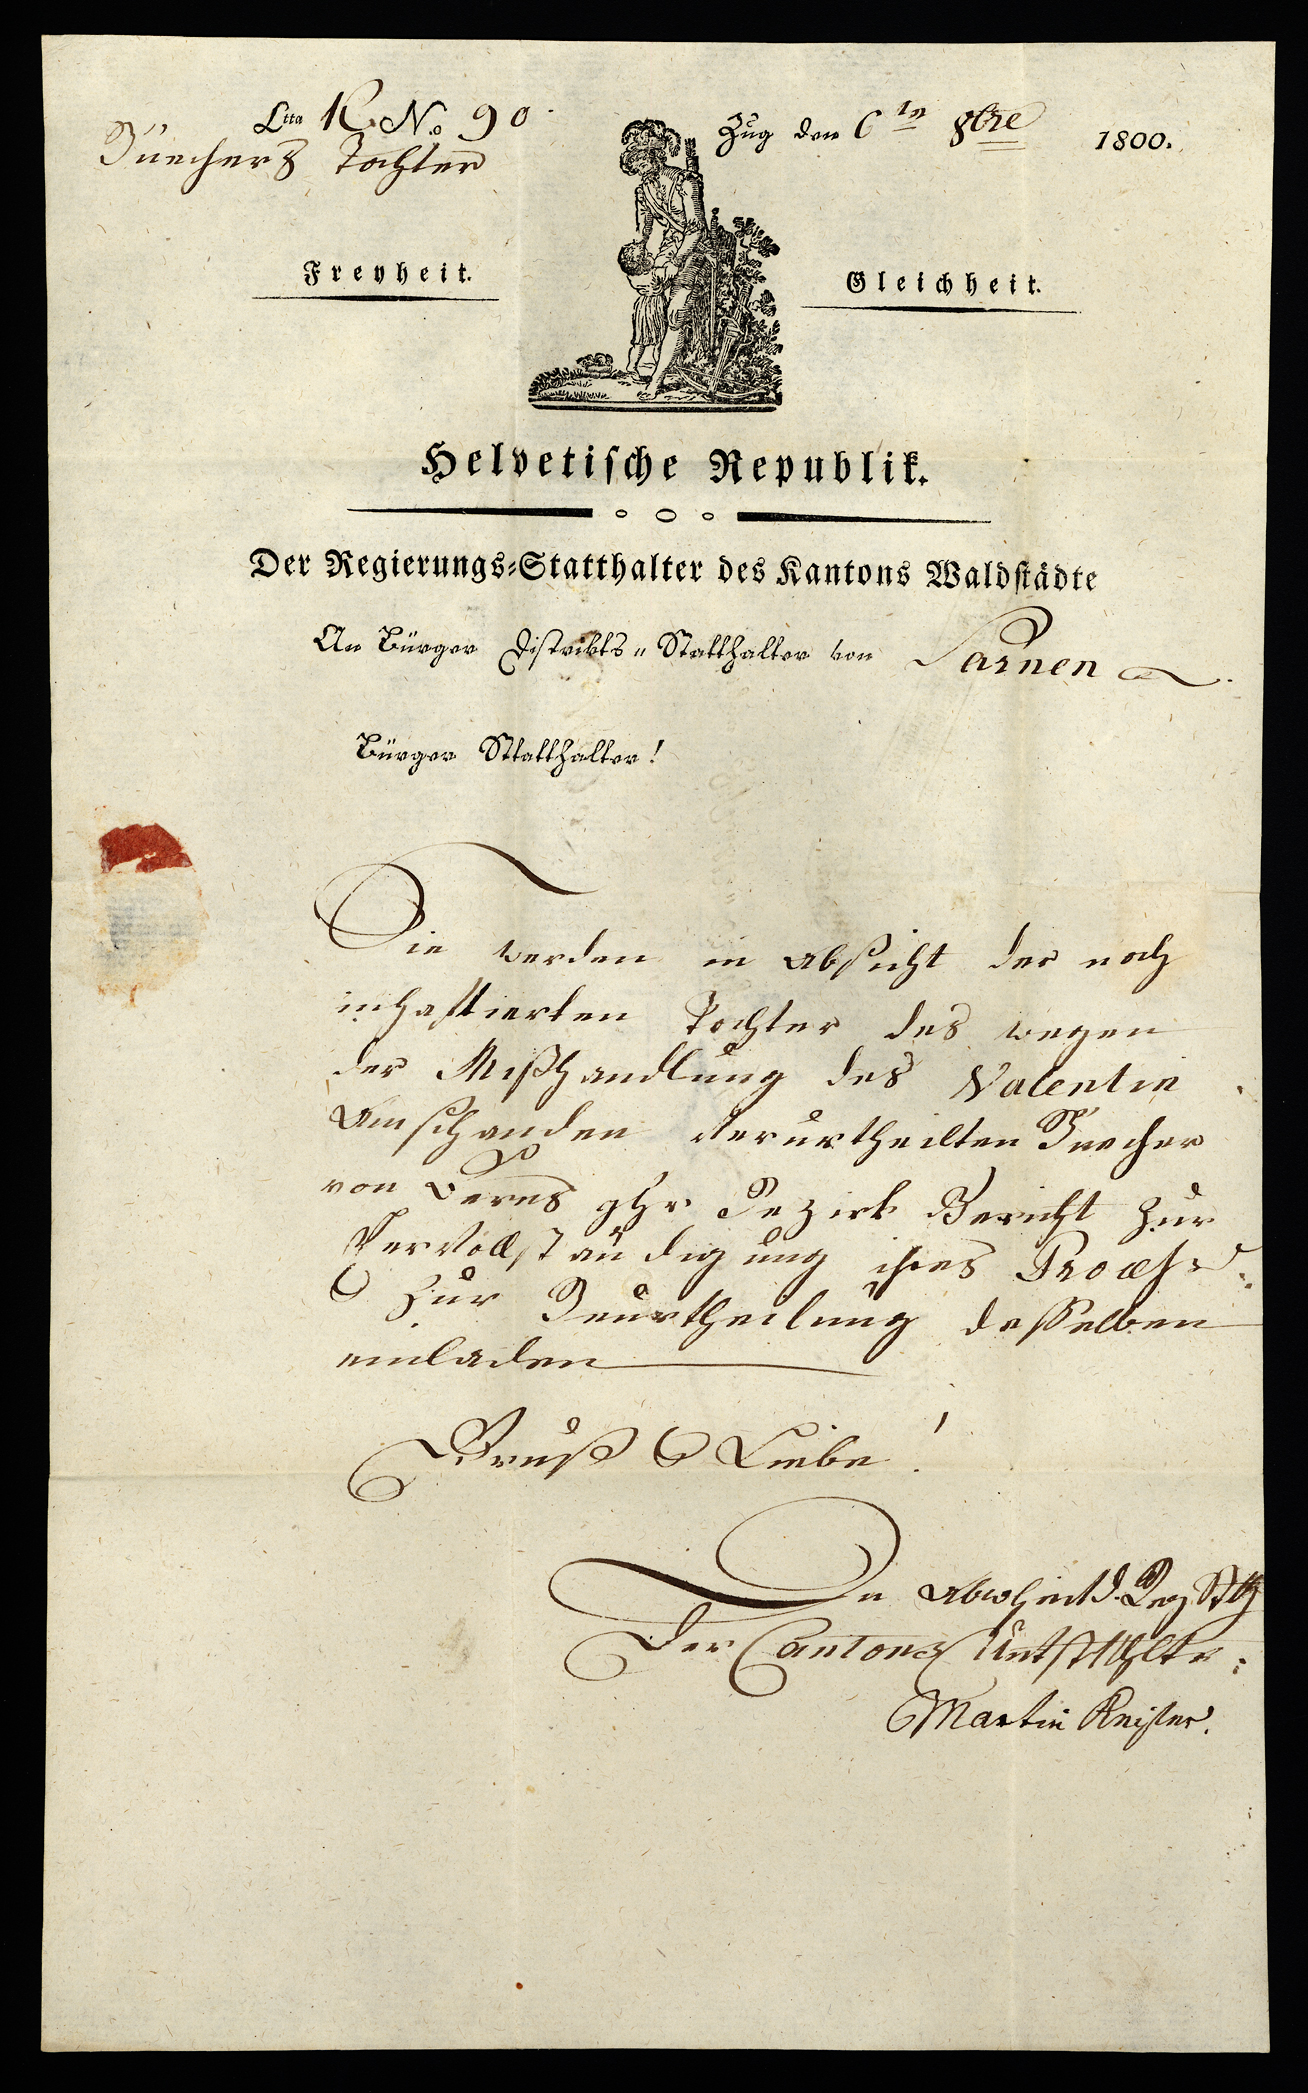 Ltta K. No. 90.
Büechers Tochter
Zug den 6ten 8bre 1800.
Freyheit.
Gleichheit.
Helvetische Republik.
Der Regierungs-Statthalter des Kantons Waldstädte
An Bürger Distrikts-Statthalter von Sarnen
Bürger Statthalter!
Sie werden in Absicht der noch
inhaftierten Tochter des wegen
der Mißhandlung des Valentin
Amschanden verurtheilten Buecher
von Kerns Bezirk Gericht zur
Vervollständigung ihres Process
& zur Beurtheilung desselben
einladen
Gruß & Liebe!
In abwesenheit d. Reg Stth
Der Cantons Untstthltr:
Martin Keiser.